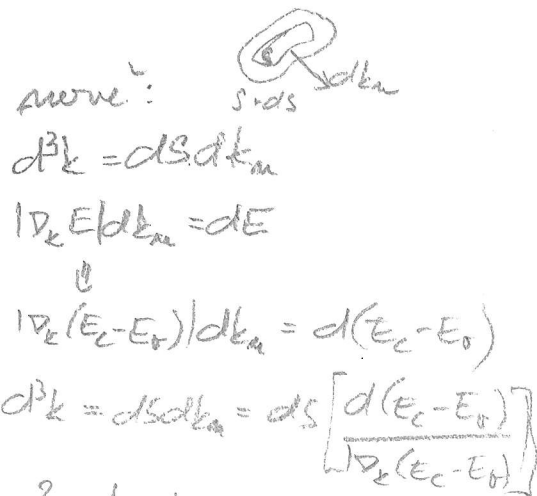 S+dS dkₙ
d³k = dS.dkₙ
|∇ₖE|dkₙ = dE
⇓
|∇ₖ(E_c-E_v)|dkₙ = d(E_c-E_v)
d³k = dSdkₙ = dS [d(E_c-E_v) / |∇ₖ(E_c-E_v)|]